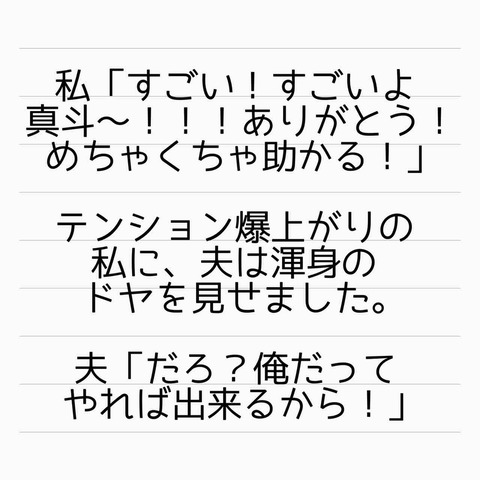 私「すごい！すごいよ
真斗〜！！！ありがとう！
めちゃくちゃ助かる！」
テンション爆上がりの
私に、夫は渾身の
ドヤを見せました。
夫「だろ？俺だって
やれば出来るから！」